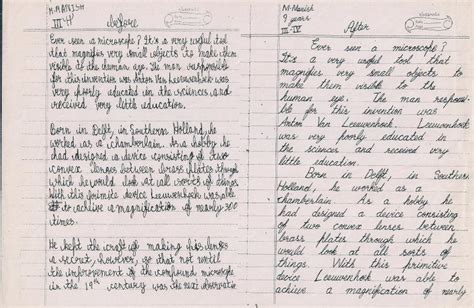 M. MANISH
III 4
Before
Ever seen a microscope? It is a very useful tool
that magnifies very small objects to make them
visible to the human eye. The man responsible
for this invention was Anton Van Leeuwenhoek was
very poorly educated in the sciences and
received very little education.
Born in Delft, in Southern Holland, he
worked as a chamberlain. As a hobby he
had designed a device consisting of two
convex lenses between brass plates through
which he would look at all sorts of things
With this primite device Leeuwenhoek was able
to achive a magnification of nearly 300
times.
He kept the craft of making his lenses
a secret, however, so that not until
the improvement of the compound microscope
in the 19th century was the next observation
M. Manish
9 years
III-IV
After
Ever seen a microscope?
It's a very useful tool that
magnifies very small objects to
make them visible to the
human eye. The man respons-
ible for this invention was
Anton Van Leeuwenhoek. Leeuwenhoek
was very poorly educated in
the sciences and received very
little education.
Born in Delft, in Southern
Holland, he worked as a
chamberlain. As a hobby he
had designed a device consisting
of two convex lenses between
brass plates through which he
would look at all sorts of
things. With this primitive
device Leeuwenhoek was able to
achieve a magnification of nearly